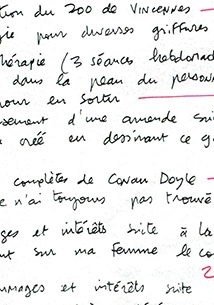 tion du zoo de Vincennes –
gie pour diverses griffures
hérapie (3 séances hebdomad
dans la peau du personn
our en sortir
sement d'une amende sui
créé en dessinant ce g
complètes de Conan Doyle –
e n'ai toujours pas trouvé
ges et intérêts suite à la
nt sur ma femme le co
2
mmages et intérêts suite